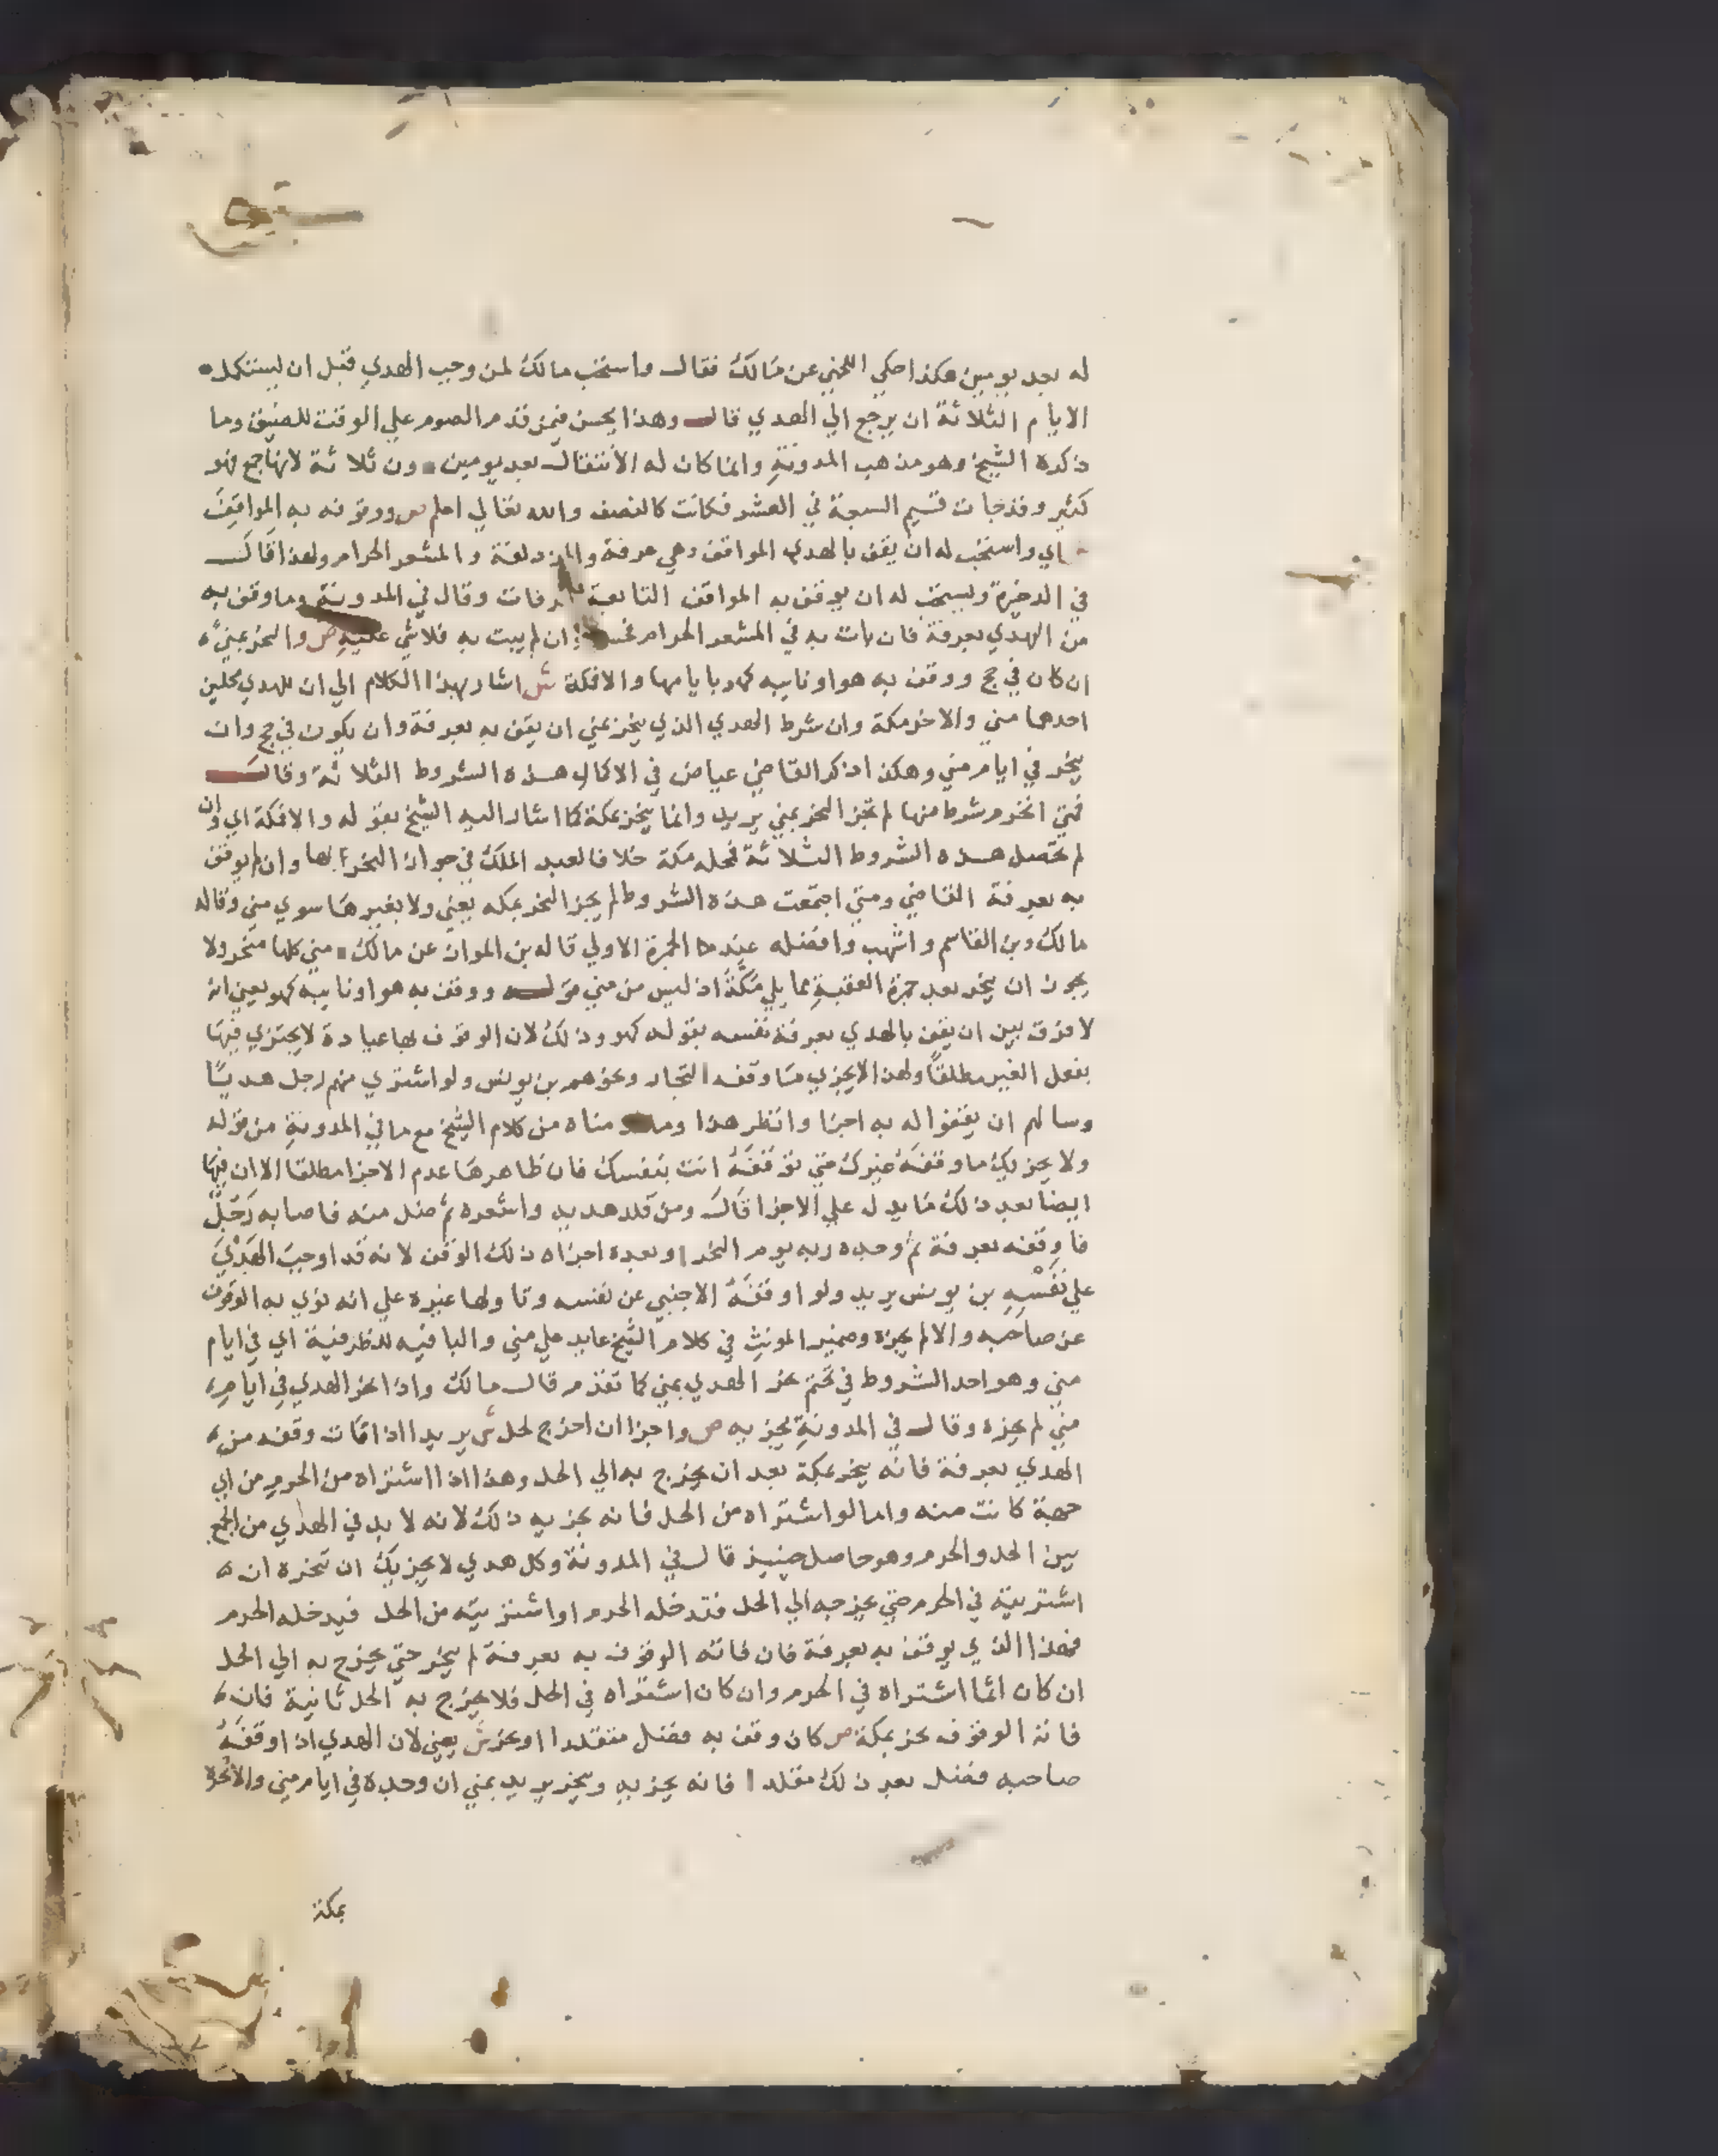 له بعد يومين هكذا حكي اللخمي عن مالك فقال واستحب مالك لمن وجب الهدي قبل ان يستكمل
الايام الثلاثة ان يرجع الي الهدي قال وهذا يحسن فيمن قدم الصوم علي الوقت المضيق وما
ذكره الشيخ هو مذهب المدونة وانما كان له الانتقال بعد يومين دون ثلاثة لانها جمع فهو
كثير وقد جات قسيم السبعة في العشر فكانت كالنصف والله تعالي اعلم ص ووقوفه به المواقف
اي واستحب له ان يقف بالهدي المواقف وهي عرفة والمزدلفة والمشعر الحرام ولهذا قال
في الذخيرة ويستحب له ان يوقف به المواقف التابعة لعرفات وقال في المدونة وما وقف به
من الهدي بعرفة فان بات به في المشعر الحرام فحسن وان لم يبت به فلا شي عليه ص والنحر بمني
ان كان في حج ووقف به هو او نايبه كهو بايامها والا فمكة ش اشار بهذا الكلام الي ان للهدي محلين
احدهما مني والاخر مكة وان شرط الهدي الذي ينحر بمني ان يقف به بعرفة وان يكون في حج وان
ينحر في ايام مني وهكذا ذكر القاضي عياض في الاكمال هذه الشروط الثلاثة وقال
فمتي انخرم شرط منها لم يجز النحر بمني يريد وانما ينحر بمكة كما اشار اليه الشيخ بقوله والا فمكة اي وان
لم تحصل هذه الشروط الثلاثة فمحله مكة خلافا لعبد الملك في جواز النحر بها وان لم يوقف
به بعرفة القاضي ومتي اجتمعت هذه الشروط لم يجز النحر بمكه يعني ولا بغيرها سوي مني وقاله
مالك وبن القاسم واشهب وافضله عند الجمرة الاولي قاله بن المواز عن مالك مني كلها منحر ولا
يجوز ان ينحر بعد جمرة العقبة مما يلي مكة اذ ليس من مني قوله ووقف به هو او نايبه كهو يعني انه
لا فرق بين ان يقف بالهدي بعرفة نفسه بقوله كهو وذلك لان الوقوف بها عبادة لا يجتزي فيها
بفعل الغير مطلقا ولهذا لا يجزي ما وقفه التجار ونحوهم بن يونس ولو اشتري منهم رجل هديا
وسالهم ان يقفوا له به اجزا وانظر هذا وما قدمناه من كلام الشيخ مع ما في المدونة من قوله
ولا يجزيك ما وقفه غيرك حتي توقفه انت بنفسك فان ظاهرها عدم الاجزا مطلقا الا ان فيها
ايضا بعد ذلك ما يدل علي الاجزا قال ومن قلد هديه واشعره ثم ضل منه فاصابه رجل
فاوقفه بعرفة ثم وجده ربه يوم النحر او بعده اجزاه ذلك الوقف لانه قد اوجب الهدي
علي نفسه بن يونس يريد ولو اوقفه الاجنبي عن نفسه وتاولها غيره علي انه نوي به الوقوف
عن صاحبه والا لم يجزه وضمير المونث في كلام الشيخ عايد علي مني والبا فيه للظرفية اي في ايام
مني وهو احد الشروط في تحتم نحر الهدي بمني كما تقدم قال مالك واذا نحر الهدي في ايام
مني لم يجزه وقال في المدونة يجزيه ص واجزا ان اخرج لحل ش يريد اذا فات وقفه من
الهدي بعرفة فانه ينحر بمكة بعد ان يخرج به الي الحل وهذا اذا اشتراه من الحرم من اي
جهة كانت منه واما لو اشتراه من الحل فانه يجزيه ذلك لانه لا بد في الهدي من الجمع
بين الحل والحرم وهو حاصل حينيذ قال في المدونة وكل هدي لا يجزيك ان تنحره ان
اشتريته في الحرم حتي تخرجه الي الحل فتدخله الحرم او اشتريته من الحل فيدخله الحرم
فهذا الذي يوقف به بعرفة فان فاته الوقوف به بعرفة لم ينحر حتي يخرج به الي الحل
ان كان انما اشتراه في الحرم وان كان اشتراه في الحل فلا يخرج به الحل ثانية فان
فاته الوقوف نحر بمكة ص كان وقف به فضل مقلدا ونحر ش يعني لان الهدي اذا وقفه
صاحبه فضل بعد ذلك مقلدا فانه يجزيه وينحر يريد بمني ان وجده في ايام مني والا نحر
بمكة